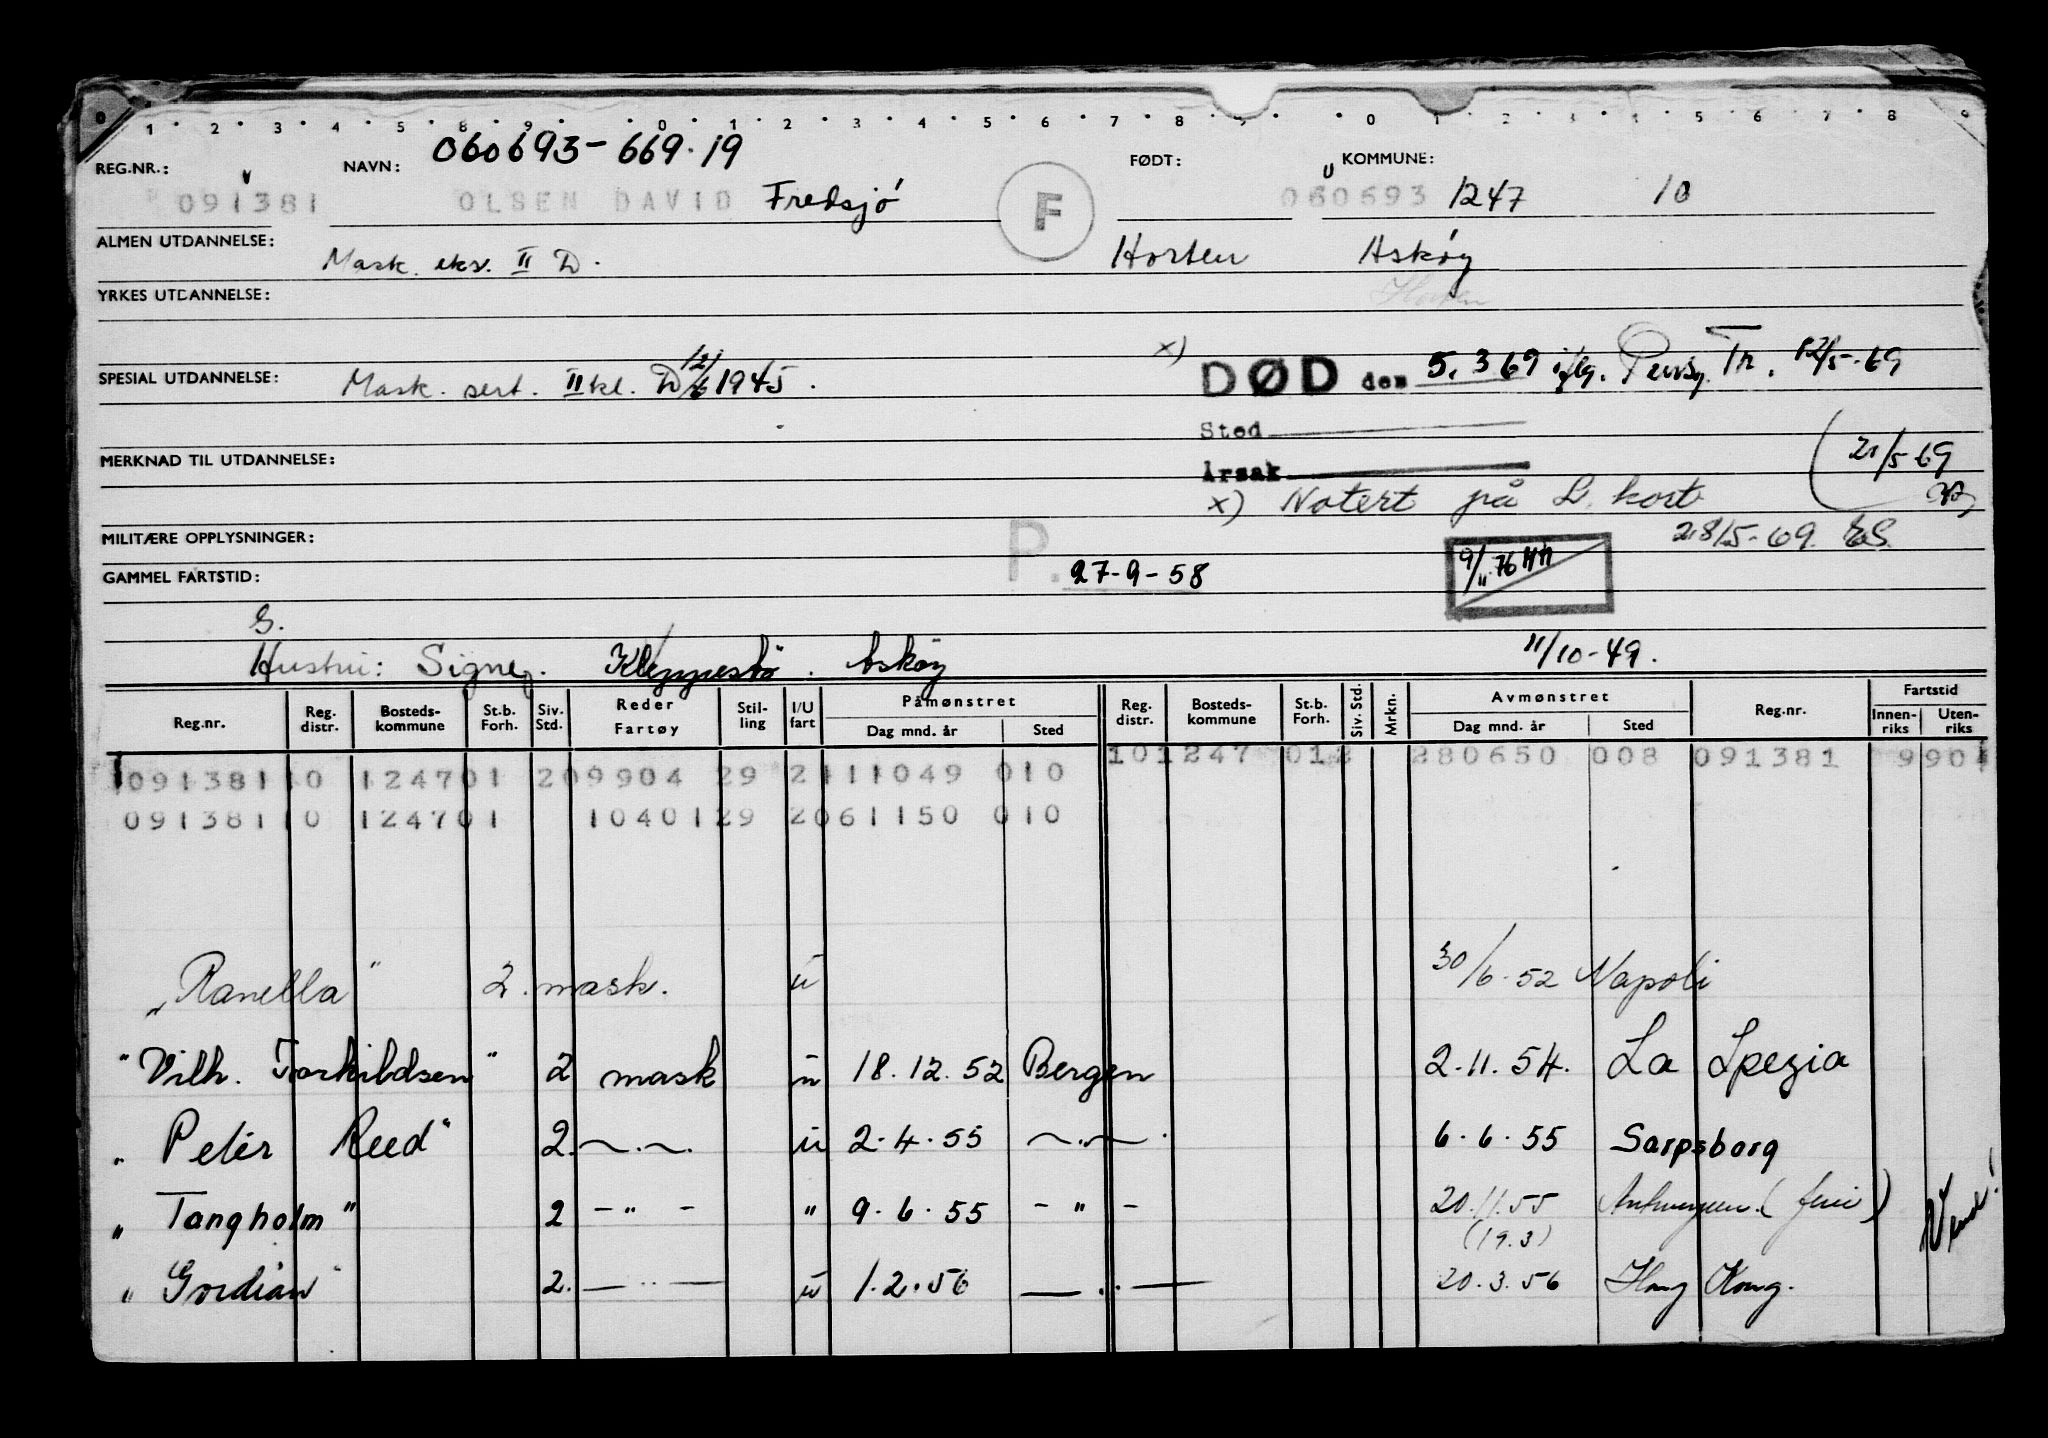 0 1 2 3 4 5 8 9 0 1 2 3 4 5 6 7 8 9 0 1 2 3 4 5 6 7 8 9
REG.NR.: NAVN: 060693-669.19 FØDT: KOMMUNE:
091381 OLSEN DAVID Fredsjö F 060693 1247 10
ALMEN UTDANNELSE: Mask. eks. II D. Horten Askøy
YRKES UTDANNELSE: Horten
SPESIAL UTDANNELSE: Mask. sert. II kl. D 12/6 1945. x) DØD den 5.3 69 iflg. Tr. 12/5-69
Sted
MERKNAD TIL UTDANNELSE: 21/5-69
Årsak
x) Notert på L. kort
MILITÆRE OPPLYSNINGER: 28/5-69. ES.
GAMMEL FARTSTID: P. 27-9-58 9/11.76 HH
G.
Hustru: Signe, Kleppestø. Askøy 11/10-49.
Reg.nr. Reg. distr. Bosteds-kommune St.b. Forh. Siv. Std. Reder Fartøy Stil-ling I/U fart Påmønstret Dag mnd. år Sted Reg. distr. Bosteds-kommune St.b. Forh. Siv. Std. Mrkn. Avmønstret Dag mnd. år Sted Reg.nr. Fartstid Innen-riks Uten-riks
091381 10 124701 209904 29 2111049 010 101247 012 280650 008 091381 9901
091381 10 124701 10401 29 2061150 010
"Ranella" 2. mask. u 30/6-52 Napoli
"Vilh. Torkildsen" 2 mask u 18.12.52 Bergen 2.11.54. La Spezia
"Peter Reed" 2. ~.~. u 2.4.55 ~.~. 6.6.55 Sarpsborg
"Tangholm" 2 - " - " 9.6.55 - " - 20.11.55 Antwerpen (ferie)
(19.3)
"Gordian" 2. — " — u 1.2.56 — " — 20.3.56 Hong Kong.
Vend!